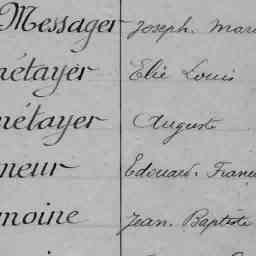 Messager Joseph. Mari
métayer Elie Louis
métayer Auguste
meur Edouard. Franç
moine Jean. Baptiste